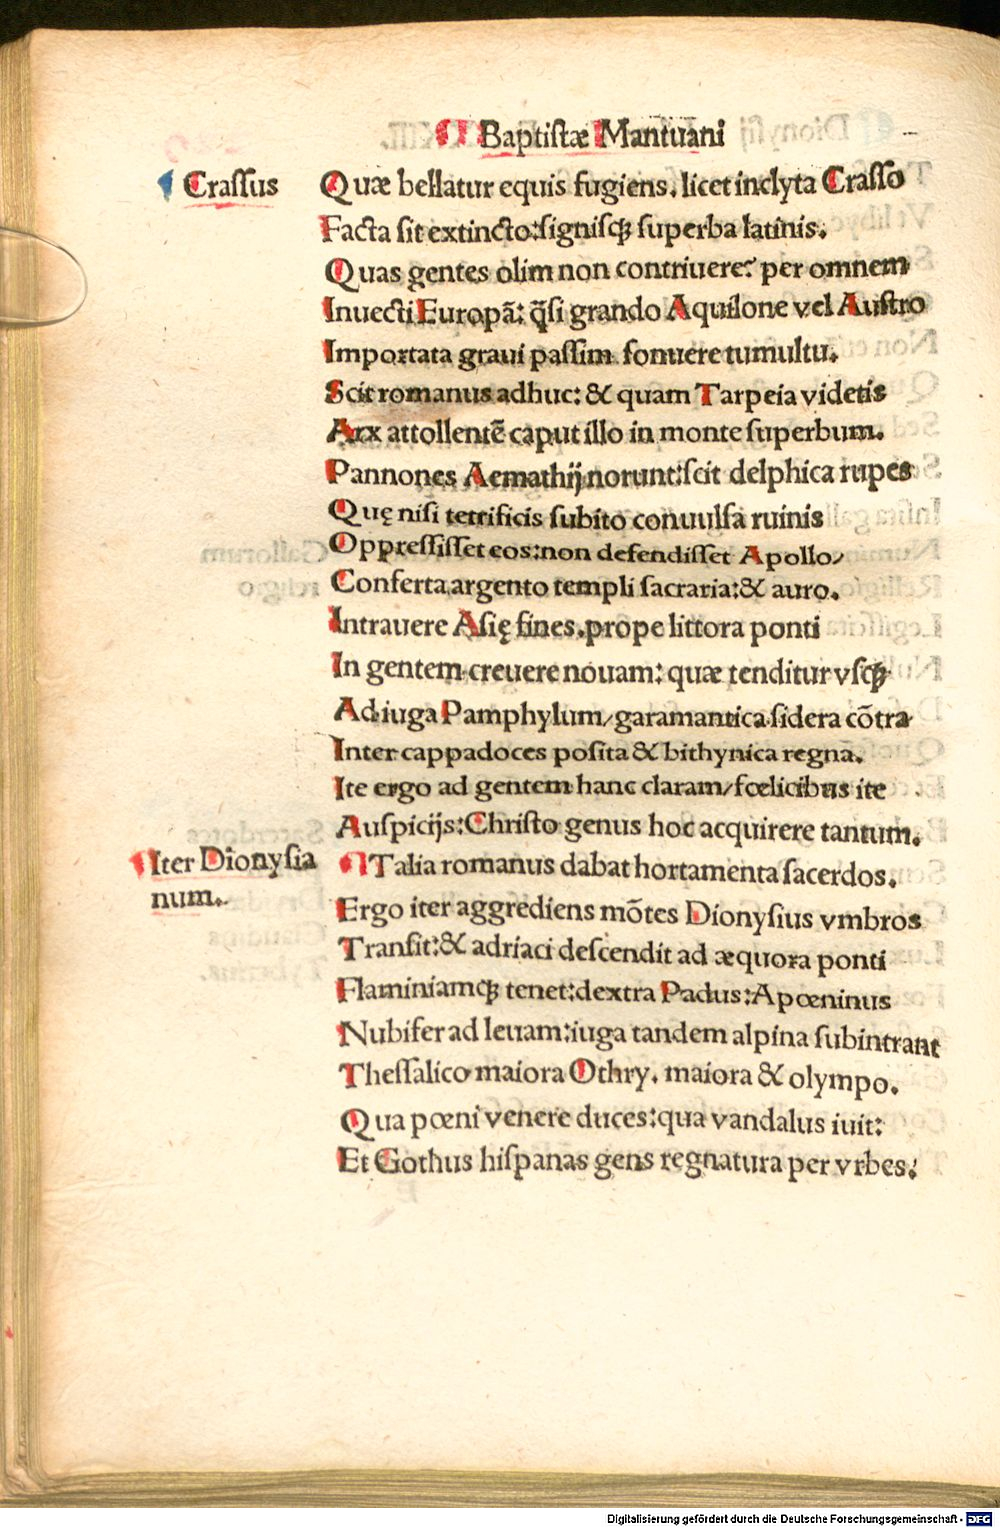 ¶ Baptistæ Mantuani
Crassus
Quæ bellatur equis fugiens, licet inclyta Crasso
Facta sit extincto: signisqꝫ superba latinis.
Quas gentes olim non contriuere? per omnem
Inuecti Europã: q̃si grando Aquilone vel Austro
Importata graui passim sonuere tumultu.
Scit romanus adhuc: & quam Tarpeia videtis
Arx attollentẽ caput illo in monte superbum.
Pannones Aemathij norunt: scit delphica rupes
Quę nisi terrificis subito conuulsa ruinis
Oppressisset eos: non defendisset Apollo/
Conferta argento templi sacraria: & auro.
Intrauere Asię fines, prope littora ponti
In gentem creuere nouam: quæ tenditur vsqꝫ
Ad iuga Pamphylum/ garamantica sidera cõtra
Inter cappadoces posita & bithynica regna.
Ite ergo ad gentem hanc claram/ fœlicibus ite
Auspicijs: Christo genus hoc acquirere tantum.
¶ Iter Dionysia
num.
¶ Talia romanus dabat hortamenta sacerdos.
Ergo iter aggrediens mõtes Dionysius vmbros
Transit: & adriaci descendit ad æquora ponti
Flaminiamqꝫ tenet: dextra Padus: Apœninus
Nubifer ad leuam: iuga tandem alpina subintrant
Thessalico maiora Othry, maiora & olympo.
Qua pœni venere duces: qua vandalus iuit:
Et Gothus hispanas gens regnatura per vrbes.
Digitalisierung gefördert durch die Deutsche Forschungsgemeinschaft - DFG